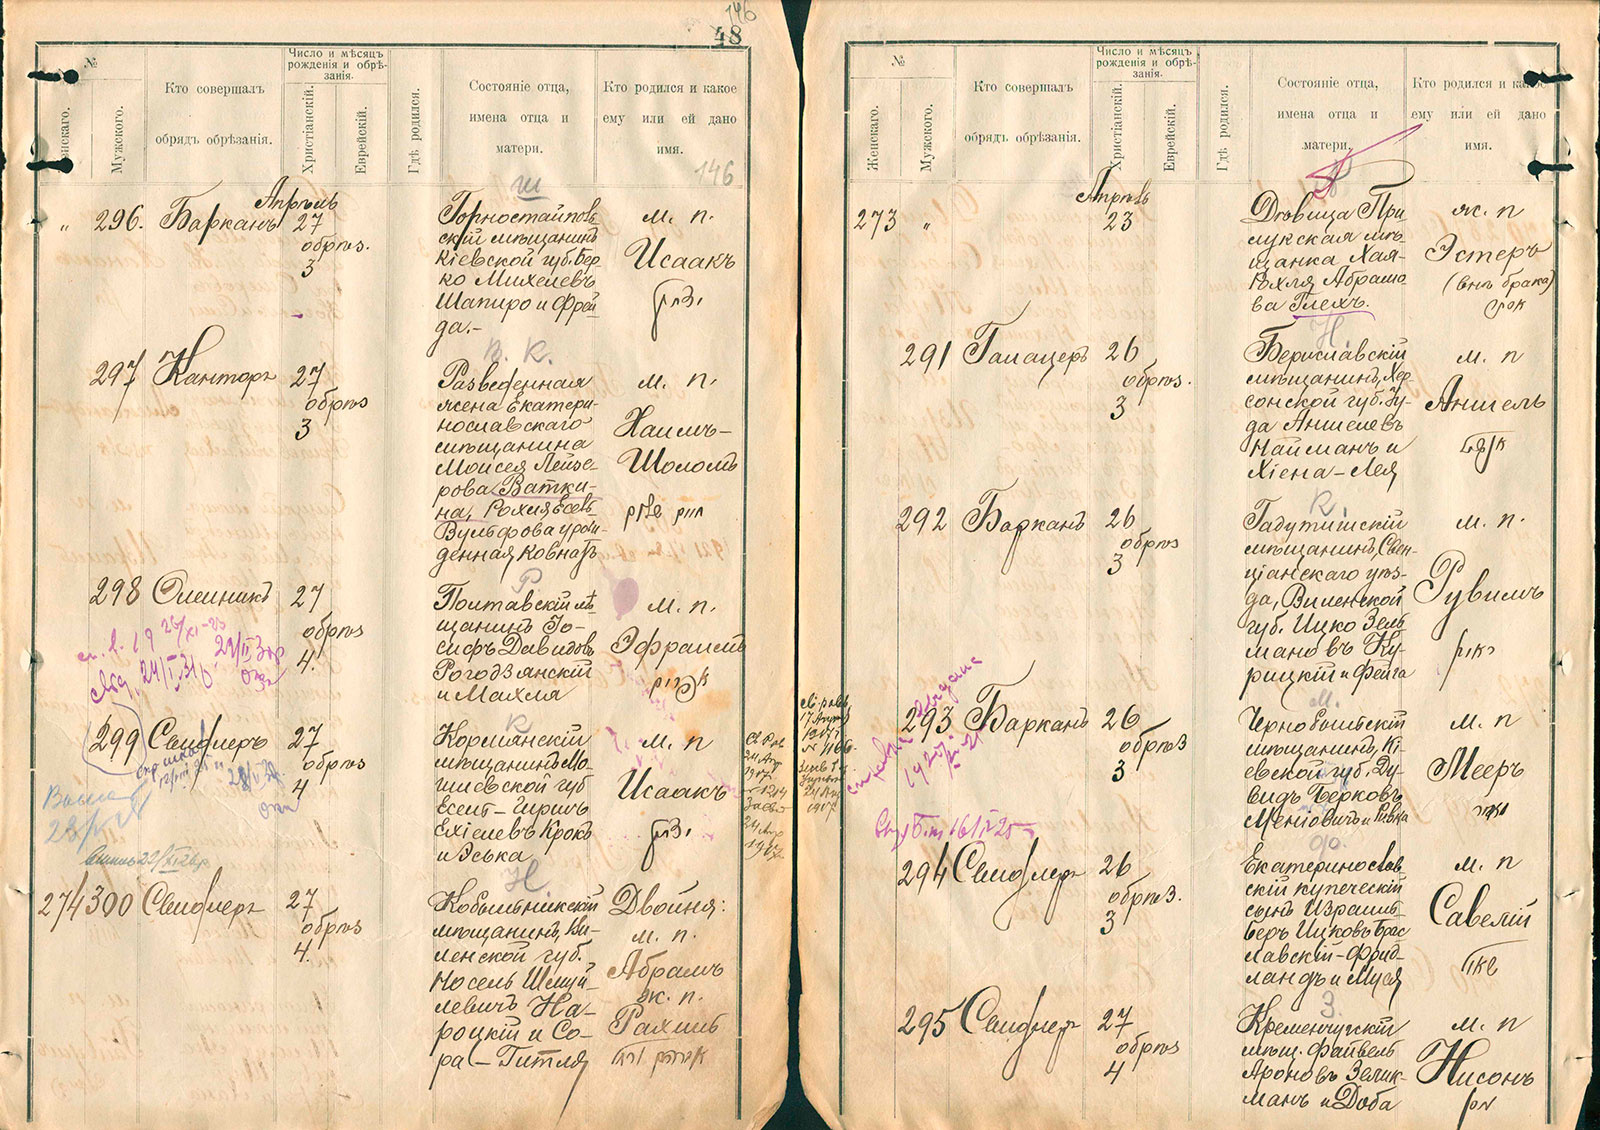 146
48
№
Женскаго.
Мужского.
Кто совершалъ
обрядъ обрѣзанія.
Число и мѣсяцъ
рожденія и обрѣ-
занія.
Христіанскій.
Еврейскій.
Гдѣ родился.
Состояніе отца,
имена отца и
матери.
Кто родился и какое
ему или ей дано
имя.
146
Апрѣль
„ 296. Барканъ 27
обрѣз.
3
Ш
Горностайполь
скій мѣщанинъ
Кіевской губ. Бер-
ко Михелевъ
Шапиро и Фрей
да.-
м. п.
Исаакъ
297 Канторъ 27
обрѣз
3
В. К.
Разведенная
жена Екатери-
нославскаго
мѣщанина
Моисея Лейзе-
рова Ватки-
на, Рохля
Вульфова урож
денная Ковнатъ
м. п.
Хаимъ-
Шоломъ
298 Олейникъ 27
обрѣз
4.
Р
Полтавскій мѣ
щанинъ Іо-
сифъ Давидовъ
Рогодзянскій
и Махля
м. п.
Эфраимъ
299 Свидлеръ 27
обрѣз
4
К
Кормянскій
мѣщанинъ Мо-
гилевской губ
Ехіелевъ Крокъ
и Эська
м. п
Исаакъ
274 300 Свидлеръ 27
обрѣз
4.
Н.
Кобыльникскій
мѣщанинъ, Ви-
ленской губ.
Носель Шмуй-
левичъ На-
роцкій и Со-
ра-Гитля
Двойня:
м. п.
Абрамъ
ж. п.
Рахиль
№
Женскаго.
Мужского.
Кто совершалъ
обрядъ обрѣзанія.
Число и мѣсяцъ
рожденія и обрѣ-
занія.
Христіанскій.
Еврейскій.
Гдѣ родился.
Состояніе отца,
имена отца и
матери.
Кто родился и какое
ему или ей дано
имя.
Апрѣль
273 „ 23
Дѣвица При
лукская мѣ-
щанка Хая-
Рохля Абрамо
ва Глехъ.
ж. п
Эстеръ
(внѣ брака)
291 Галацеръ 26
обрѣз.
3
Н.
Бериславскій
мѣщанинъ, Хер
сонской губ. Іу-
да Аншелевъ
Найманъ и
Хіена-Лея
м. п
Аншель
292 Барканъ 26
обрѣз
3
К
Гадутишскій
мѣщанинъ, Свен-
ціанскаго уѣз-
да, Виленской
губ. Ицко Зель
мановъ Ку-
рицкій и Фейга
м. п.
Рувимъ
293 Барканъ 26
обрѣз
3
М.
Чернобыльскій
мѣщанинъ, Кі-
евской губ. Ду-
видъ Берковъ
Меніовичъ и Ривка
м. п
Мееръ
294 Свидлеръ 26
обрѣз.
3
Ф.
Екатеринослав
скій купеческій
сынъ Израиль
Беръ Ицковъ Брас
лавскій-Фрид-
ландъ и Муся
м. п
Савелій
295 Свидлеръ 27
обрѣз
4
З.
Кременчугскій
мѣщ. Файвель
Ароновъ Зелик-
манъ и Доба
м. п
Нисонъ